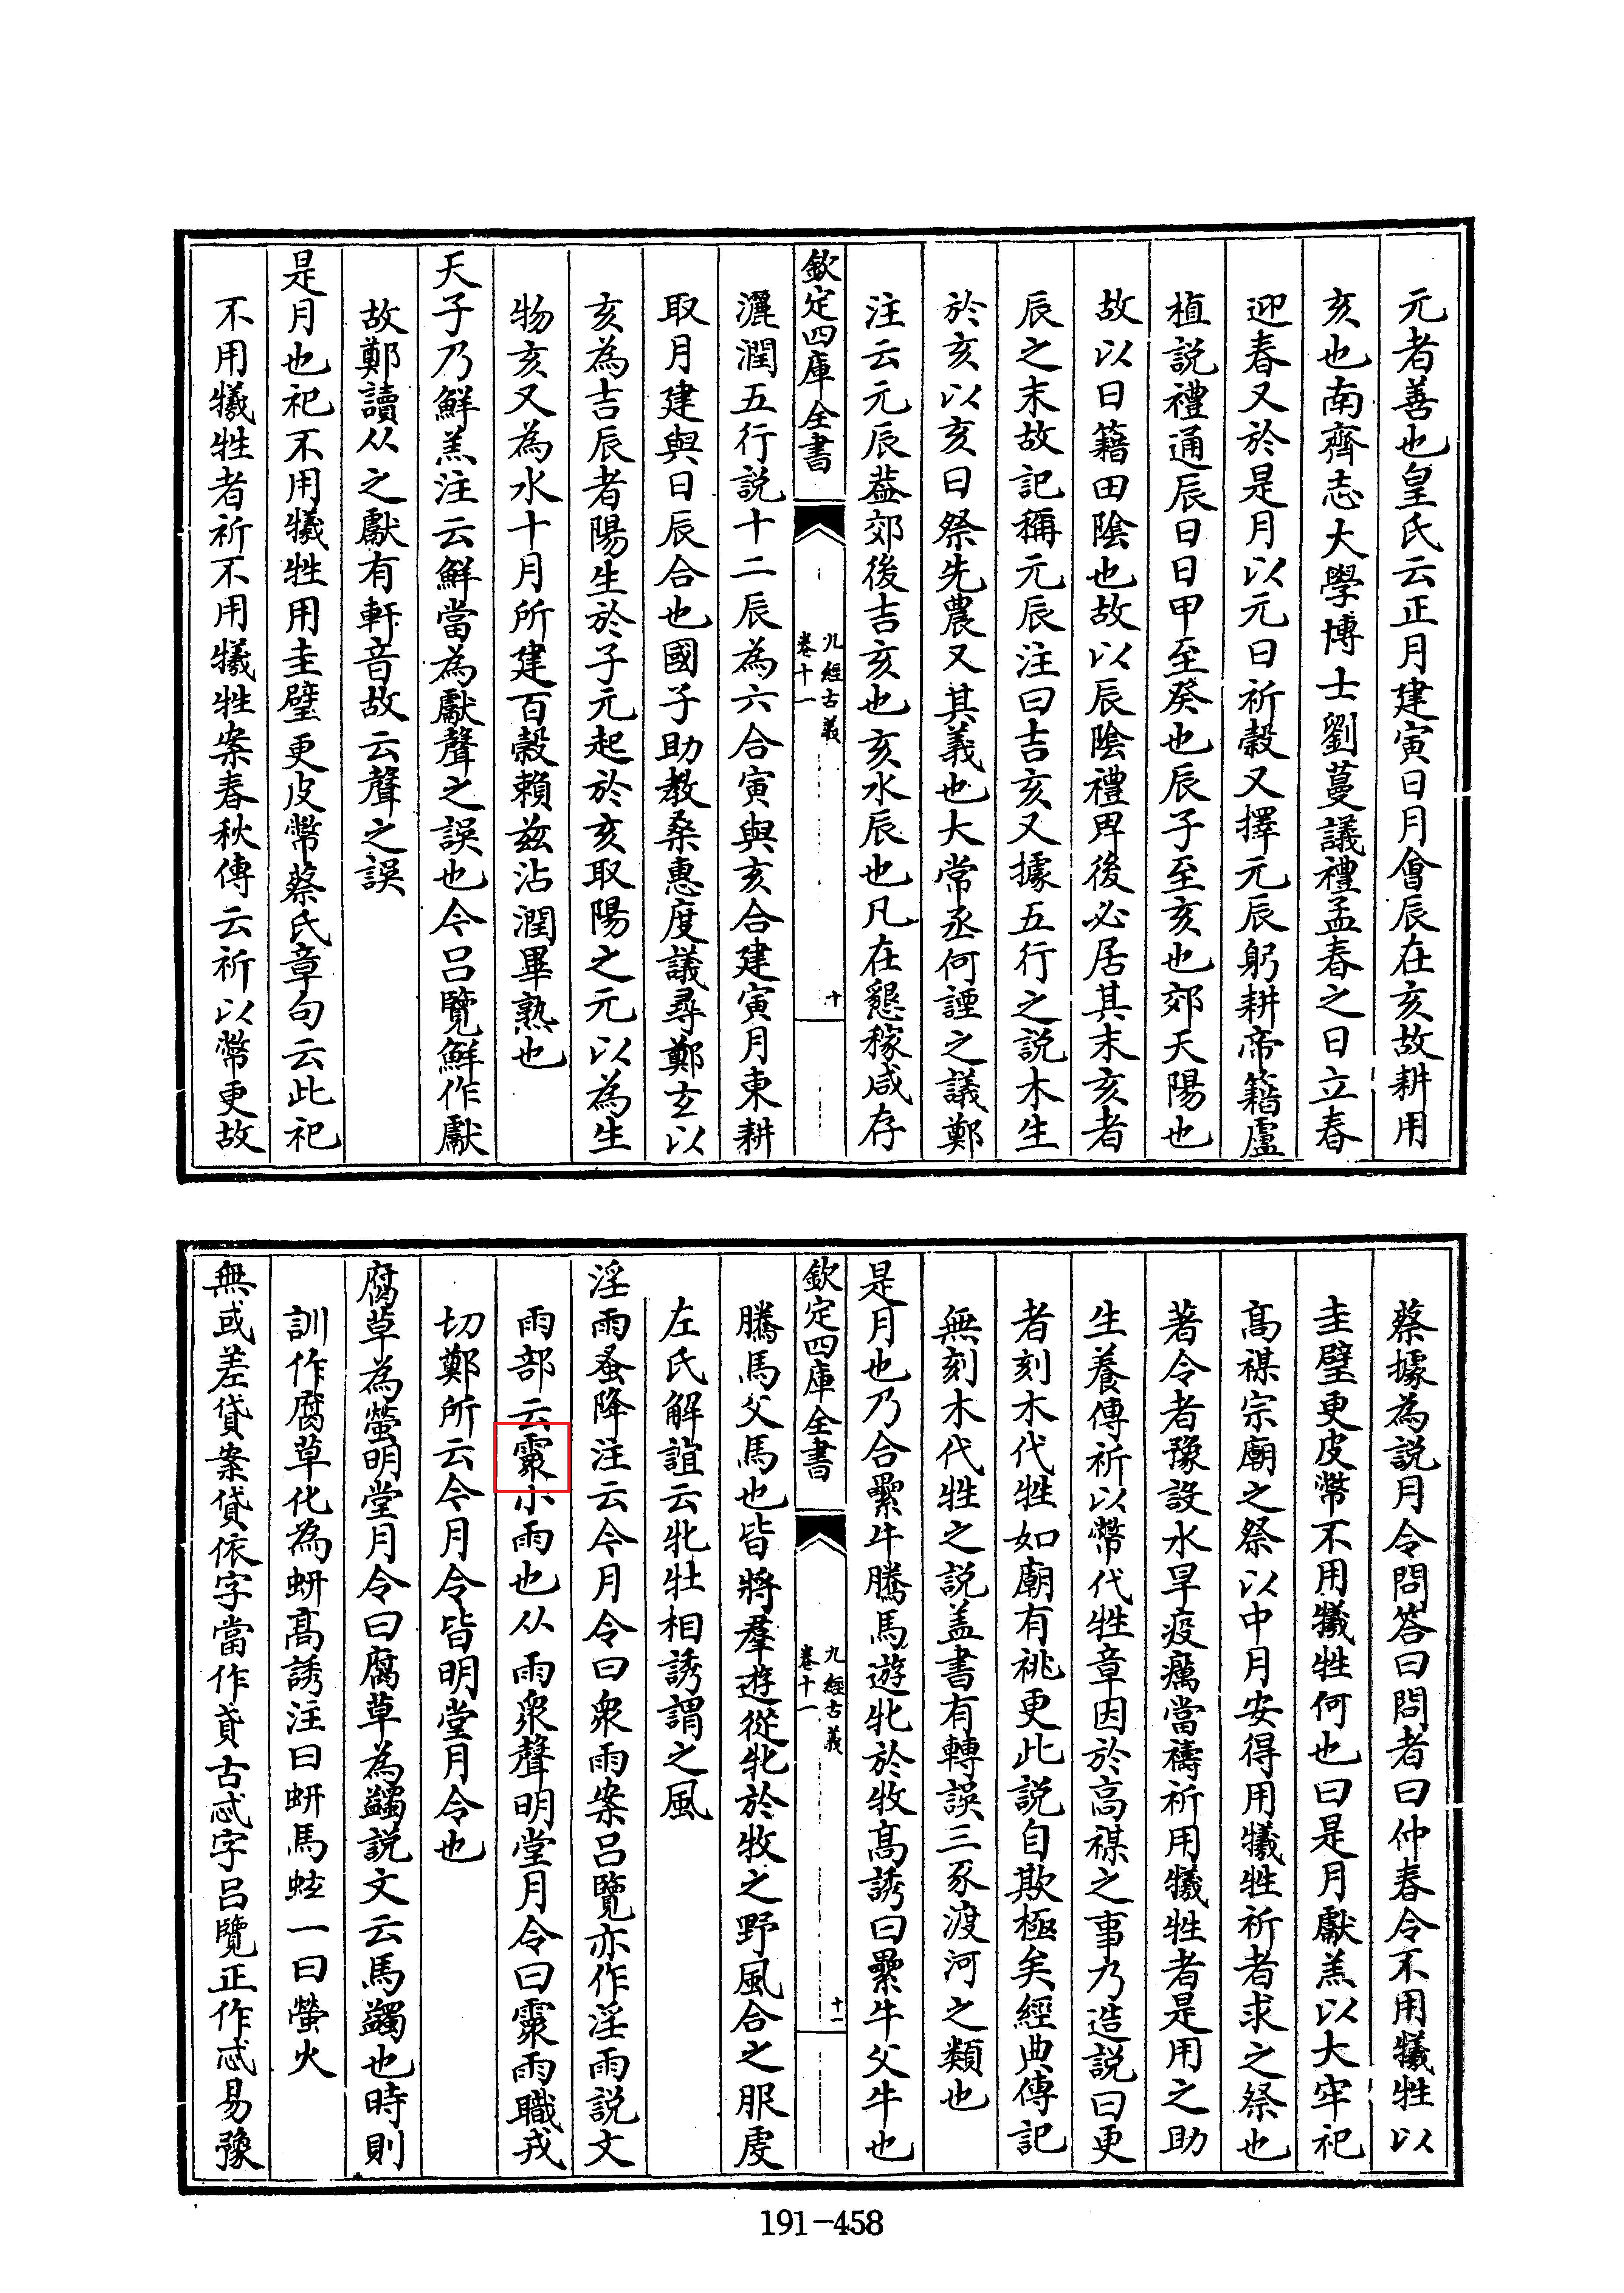 元者善也皇氏云正月建寅日月會辰在亥故耕用
亥也南齊志大學博士劉蔓議禮孟春之日立春
迎春又於是月以元日祈穀又擇元辰躬耕帝籍盧
植説禮通辰日日甲至癸也辰子至亥也郊天陽也
故以日籍田陰也故以辰陰禮卑後必居其末亥者
辰之末故記稱元辰注曰吉亥又據五行之説木生
於亥以亥日祭先農又其義也大常丞何諲之議鄭
注云元辰葢郊後吉亥也亥水辰也凡在懇稼咸存
欽定四庫全書
九經古義
卷十一
十
灑潤五行説十二辰為六合寅與亥合建寅月東耕
取月建與日辰合也國子助教桑惠度議尋鄭玄以
亥為吉辰者陽生於子元起於亥取陽之元以為生
物亥又為水十月所建百穀賴兹沾潤畢熟也
天子乃鮮羔注云鮮當為獻聲之誤也今吕覽鮮作獻
故鄭讀从之獻有軒音故云聲之誤
是月也祀不用犧牲用圭璧更皮幣蔡氏章句云此祀
不用犧牲者祈不用犧牲案春秋傳云祈以幣更故
蔡據為説月令問答曰問者曰仲春令不用犧牲以
圭璧更皮幣不用犧牲何也曰是月獻羔以大牢祀
高禖宗廟之祭以中月安得用犧牲祈者求之祭也
著令者豫設水旱疫癘當禱祈用犧牲者是用之助
生養傳祈以幣代牲章因於高禖之事乃造説曰更
者刻木代牲如廟有祧更此説自欺極矣經典傳記
無刻木代牲之説盖書有轉誤三豕渡河之類也
是月也乃合纍牛騰馬遊牝於牧髙誘曰纍牛父牛也
欽定四庫全書
九經古義
卷十一
十一
騰馬父馬也皆將羣遊從牝於牧之野風合之服虔
左氏解誼云牝牡相誘謂之風
淫雨蚤降注云今月令曰衆雨案吕覽亦作淫雨説文
雨部云霥小雨也从雨衆聲明堂月令曰霥雨職戎
切鄭所云今月令皆明堂月令也
腐草為螢明堂月令曰腐草為蠲説文云馬蠲也時則
訓作腐草化為蚈髙誘注曰蚈馬蚿一曰螢火
無或差貸案貸依字當作貣古忒字吕覽正作忒易豫
191-458